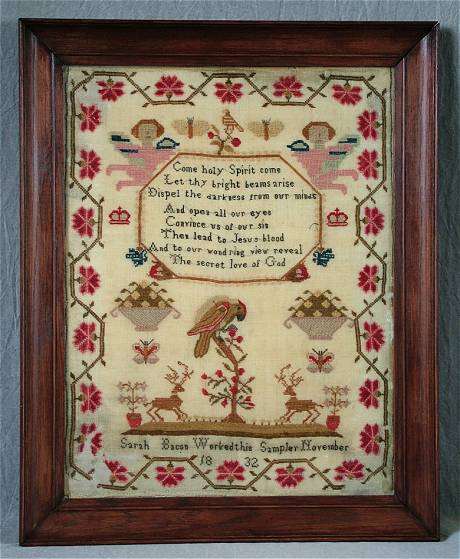 Come holy Spirit come
Let thy bright beams arise
Dispel the darkness from our minds
And open all our eyes
Convince us of our sin
Then lead to Jesus blood
And to our wondring view reveal
The secret love of God
Sarah Bacon Worked this Sampler November
18 32